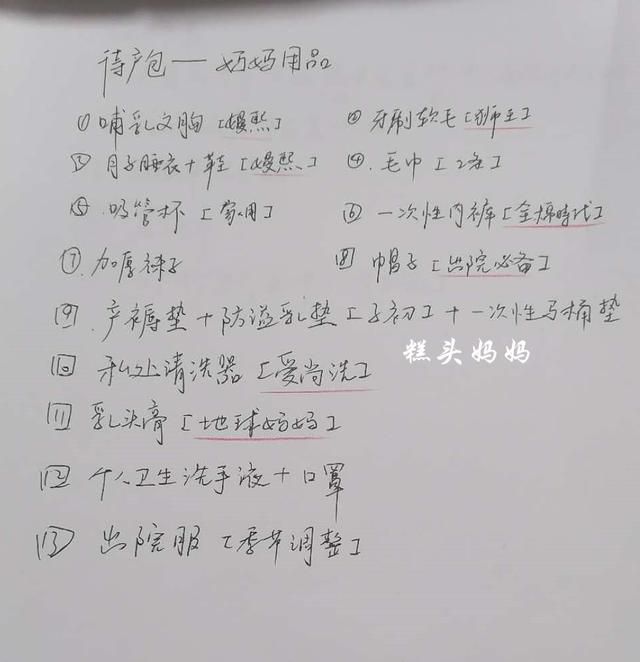 待产包——妈妈用品
①哺乳文胸[嫚熙] ②牙刷软毛[狮王]
③月子睡衣+鞋[嫚熙] ④.毛巾[2条]
⑤.吸管杯[家用] ⑥一次性内裤[全棉時代]
⑦.加厚袜子 ⑧帽子[出院必备]
⑨.产褥垫+防溢乳垫[子初]+一次性马桶垫
糕头妈妈
⑩私处清洗器[爱尚洗]
⑪乳头膏[地球妈妈]
⑫个人卫生洗手液+口罩
⑬出院服[季节调整]